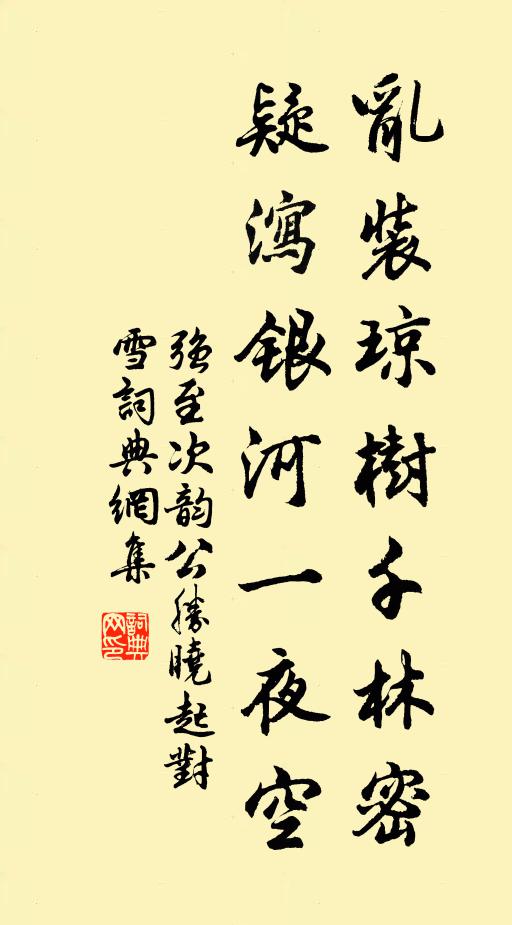 亂裝琼樹千林密
疑瀉銀河一夜空
强至次韵公勝曉起對
雪詞典網集
詞典网印